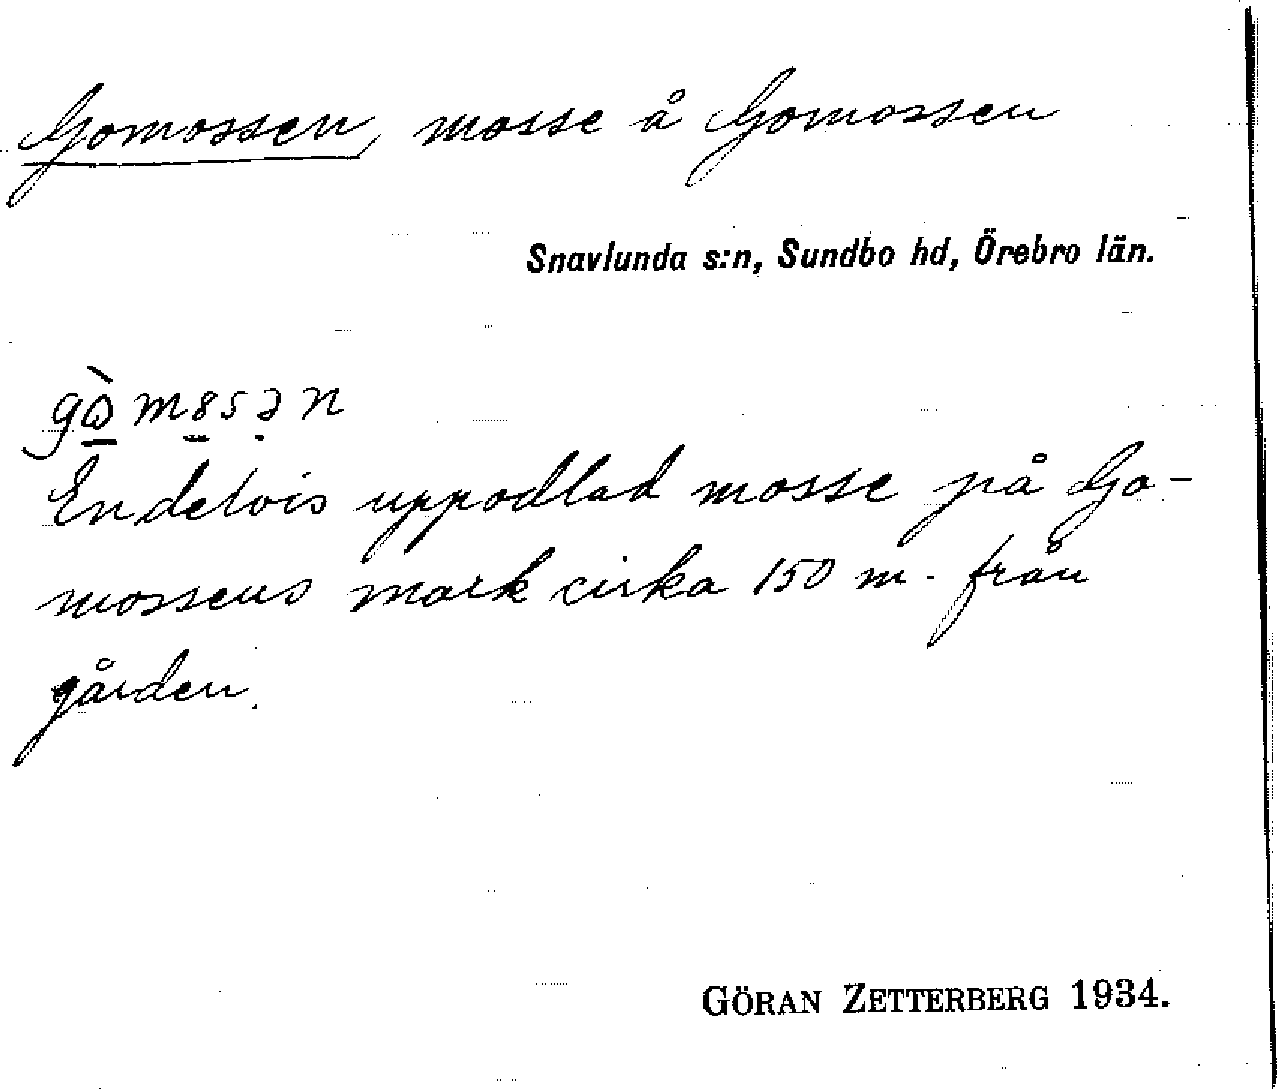 Gomossen, mosse å Gomossen
Snavlunda s:n, Sundbo hd, Örebro län.
Endelvis uppodlad mosse på Go-
mossens mark cirka 150 m. från
gården.
GÖRAN ZETTERBERG 1934.